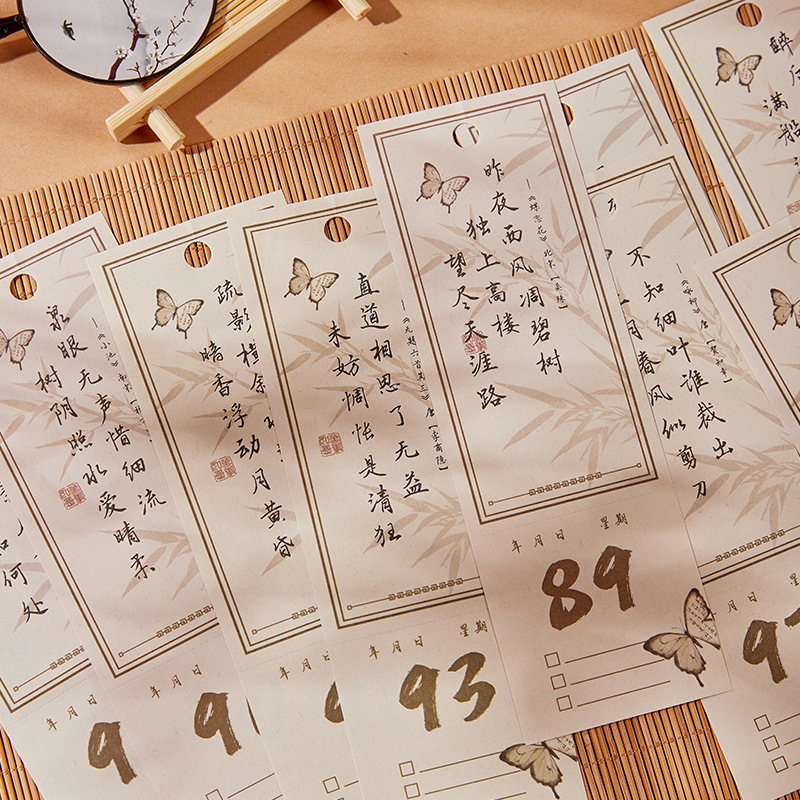 何处
—《小池》南宋
泉眼无声惜细流
树阴照水爱晴柔
年 月 日
9
疏影横
暗香浮动月黄昏
年 月 日
9
—《无题六首其三》唐[李商隐]
直道相思了无益
未妨惆怅是清狂
年 月 日 星期
93
—《蝶恋花》北宋[晏殊]
昨夜西风凋碧树
独上高楼
望尽天涯路
年 月 日 星期
89
—《咏柳》唐[贺知章]
不知细叶谁裁出
月春风似剪刀
月 日
9
醉后
满船